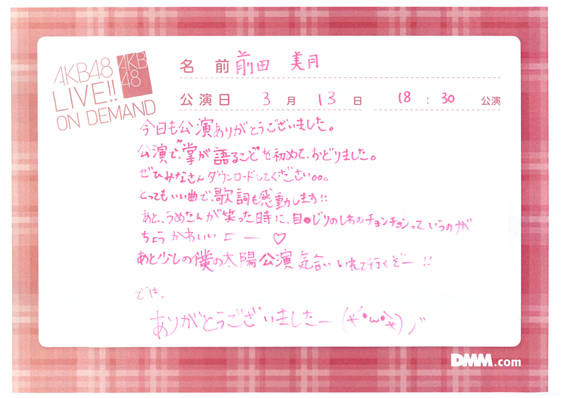 AKB48
LIVE!!
ON DEMAND
AKB
48
名 前 前田 美月
公演日 3 月 13 日 18 : 30 公演
今日も公演ありがとうございました。
公演で"掌が語ること"を初めて、おどりました。
ぜひみなさんダウンロードしてください。。。
とってもいい曲で、歌詞も感動します!!
あと、うめたんが笑った時に、目じりのしわがチョンチョンって、いうのが
ちょうかわいいーー♡
あと少しの僕の太陽公演 気合いいれて行くぞー!!
では、
ありがとうございましたー
DMM.com